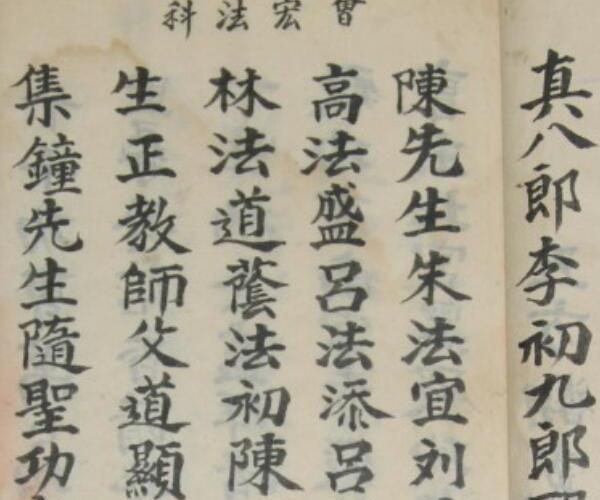 會宏法科
真八郎李初九郎
陳先生朱法宜刘
高法盛呂法添呂
林法道蔭法初陳
生正教師父道顯
集鐘先生隨聖功